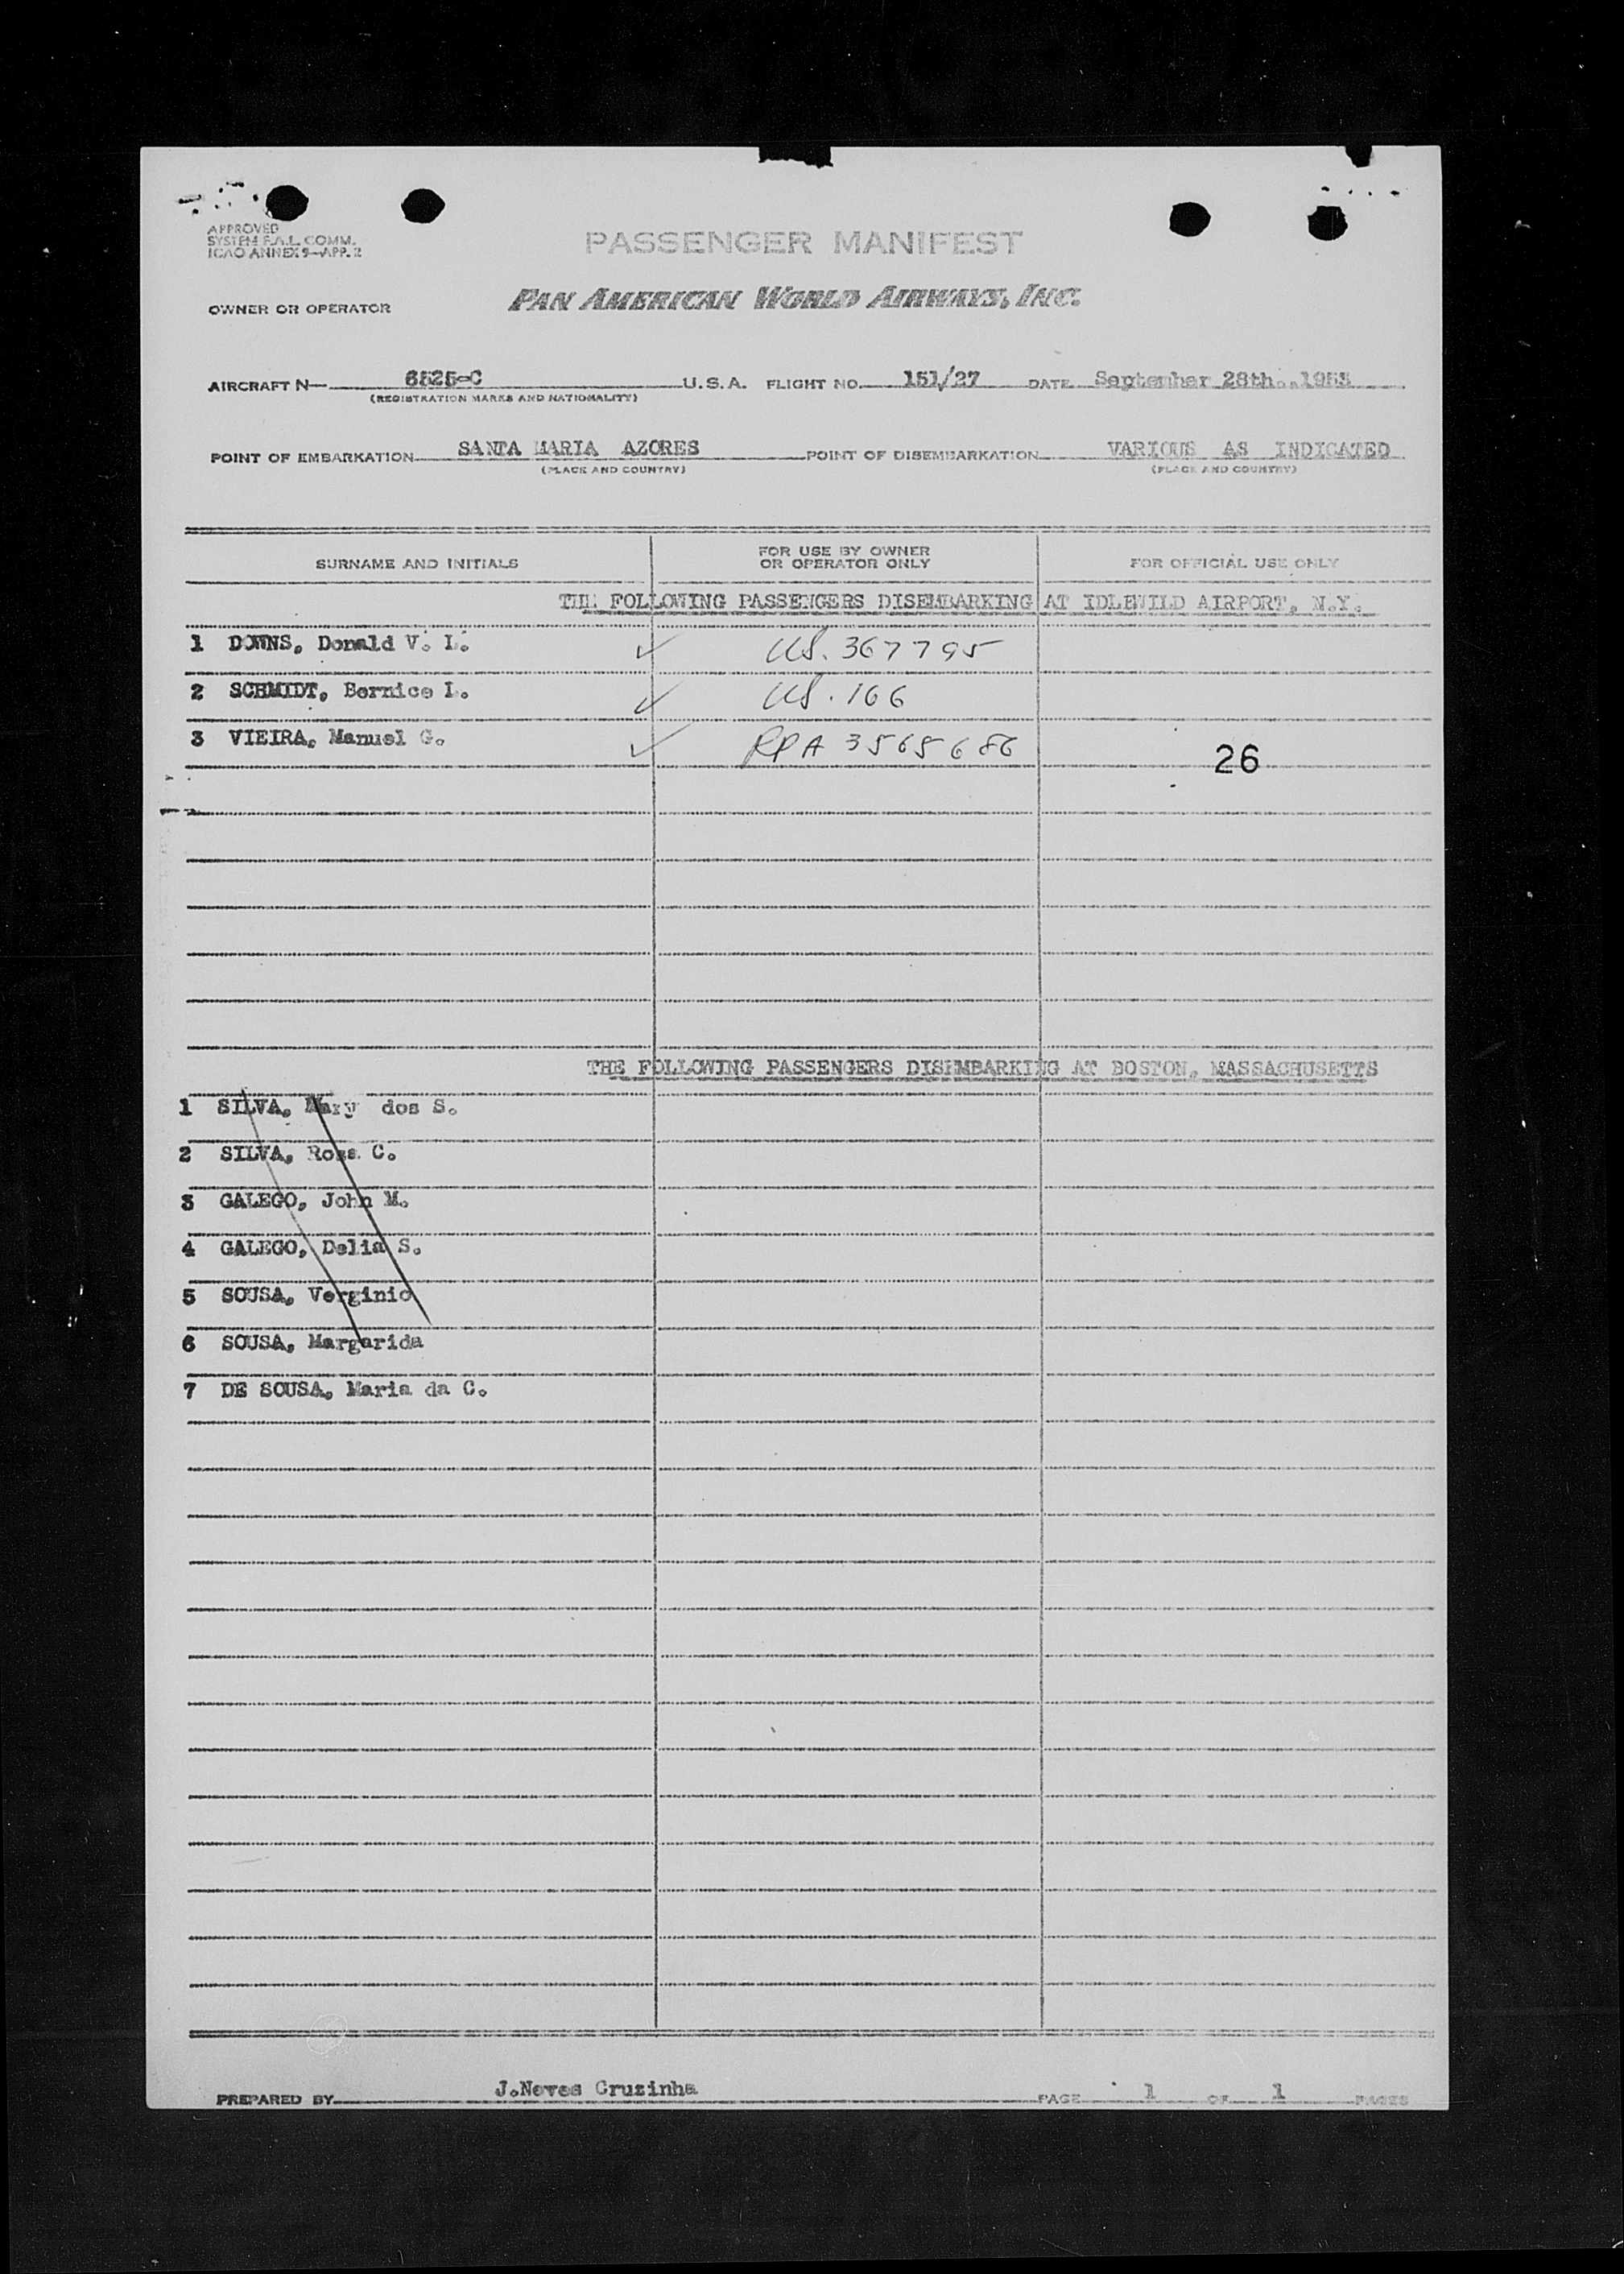 APPROVED
SYSTEM F.A.L. COMM.
ICAO ANNEX 9—APP. 2
PASSENGER MANIFEST
OWNER OR OPERATOR PAN AMERICAN WORLD AIRWAYS, INC.
AIRCRAFT N— 6525-C U.S.A. FLIGHT NO. 151/27 DATE September 28th., 1953
(REGISTRATION MARKS AND NATIONALITY)
POINT OF EMBARKATION SANTA MARIA AZORES POINT OF DISEMBARKATION VARIOUS AS INDICATED
(PLACE AND COUNTRY) (PLACE AND COUNTRY)
SURNAME AND INITIALS FOR USE BY OWNER OR OPERATOR ONLY FOR OFFICIAL USE ONLY
THE FOLLOWING PASSENGERS DISEMBARKING AT IDLEWILD AIRPORT, N.Y.
1 DOWNS, Donald V. L. ✓ US. 367795
2 SCHMIDT, Bernice L. ✓ US. 166
3 VIEIRA, Manuel G. ✓ RPA 3565686
26
THE FOLLOWING PASSENGERS DISEMBARKING AT BOSTON, MASSACHUSETTS
1 SILVA, Mary dos S.
2 SILVA, Rosa C.
3 GALEGO, John M.
4 GALEGO, Delia S.
5 SOUSA, Verginio
6 SOUSA, Margarida
7 DE SOUSA, Maria da C.
PREPARED BY J.Neves Cruzinha PAGE 1 OF 1 PAGES